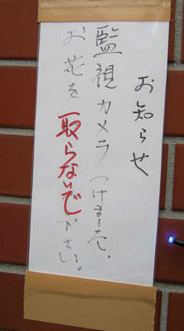 お知らせ
監視カメラつけました。
お花を取らないで下さい。